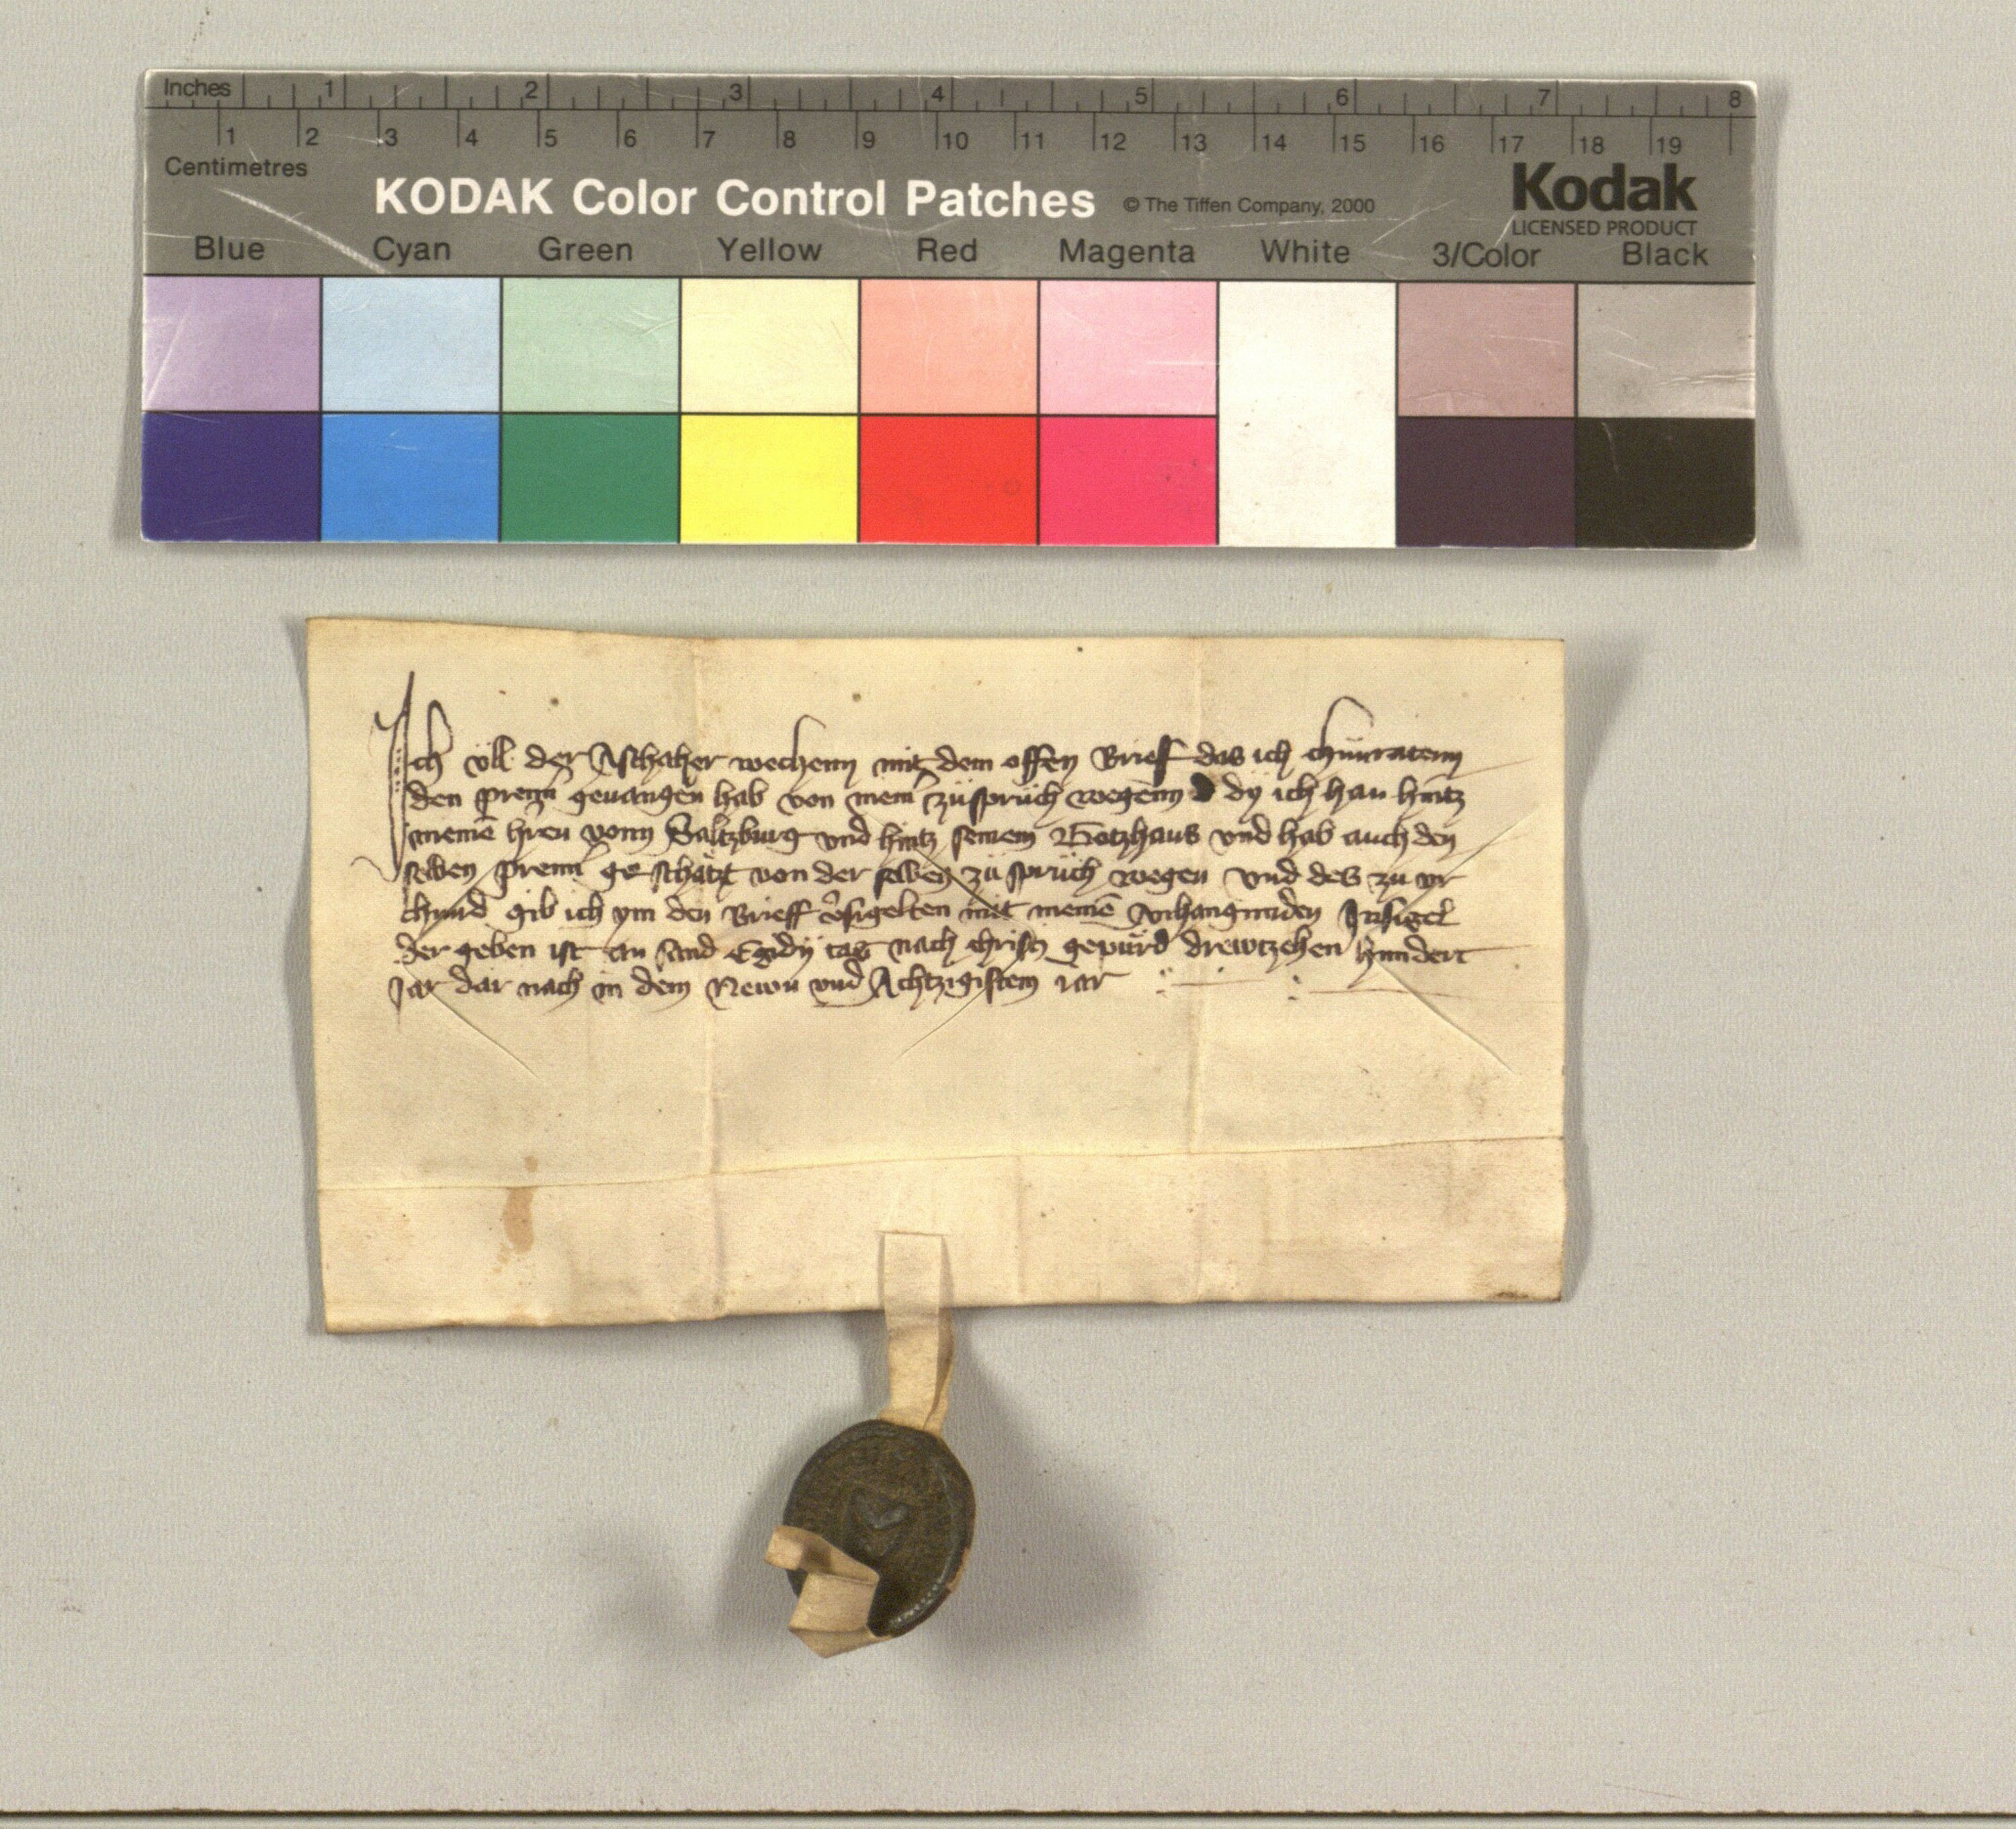 Inches 1 2 3 4 5 6 7 8
1 2 3 4 5 6 7 8 9 10 11 12 13 14 15 16 17 18 19
Centimetres
KODAK Color Control Patches © The Tiffen Company, 2000 Kodak
LICENSED PRODUCT
Blue Cyan Green Yellow Red Magenta White 3/Color Black
Ich üll der Aschaher wechenn mit dem offen Brief das ich chunratenn
den prenn geuangen hab von mein züsprüch wegenn dy ich han hintz
meinē hren vonn Saltzburg vnd hintz seinem Gotzhaus vnd hab auch den
selben prenn ge schätzt von der selben zü sprüch wegen vnd des zu vr
chund gib ich ym den Brieff v̾sigelten mit meinē Anhangunden Insigel
der geben ist an sand Egidy tag nach christ gepürd drewtzehen hundert
Jar dar nach in dem Newn vnd Achtzigistem iar